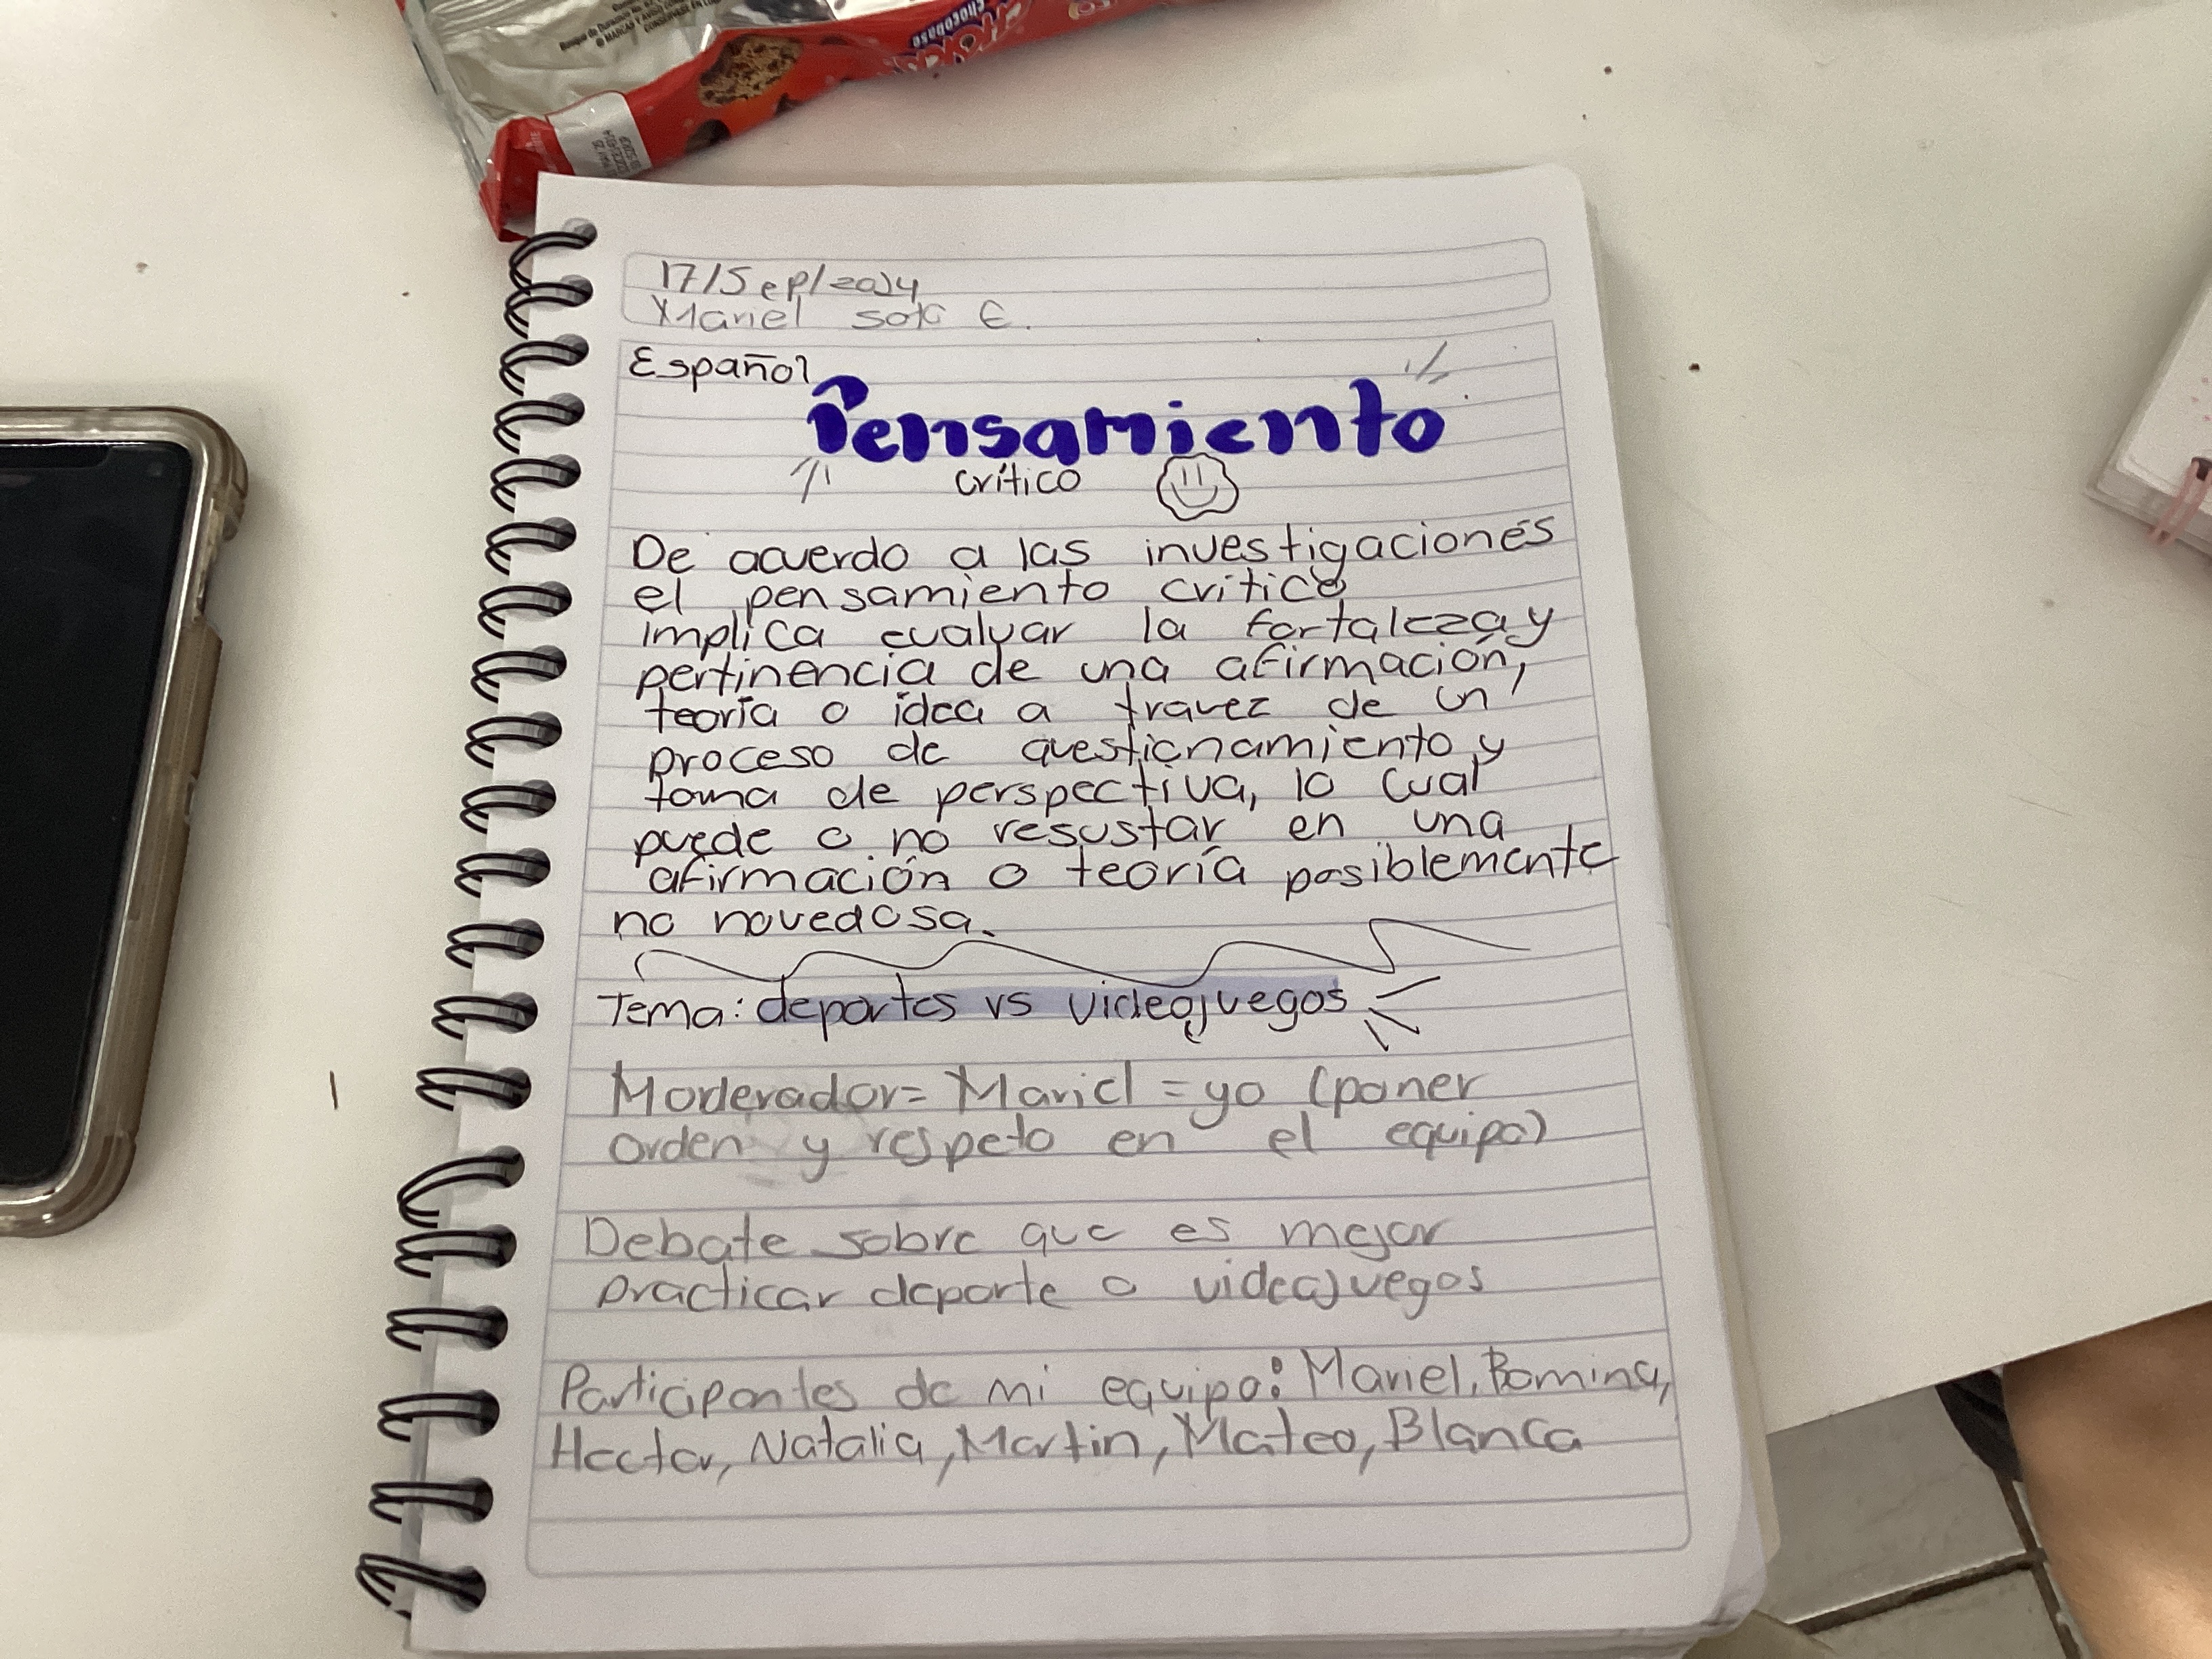 chocobase
17/Sep/2024
Mariel soto E.
Español
Pensamiento
crítico
De acuerdo a las investigaciones
el pensamiento critico
implica evaluar la fortaleza y
pertinencia de una afirmación,
teoría o idea a travez de un
proceso de questionamiento y
toma de perspectiva, lo cual
puede o no resustar en una
afirmación o teoría posiblemente
no novedosa.
Tema: deportes vs videojuegos
Moderador= Mariel = yo (poner
orden y respeto en el equipo)
Debate sobre que es mejor
practicar deporte o videojuegos
Participantes de mi equipo: Mariel, Romina,
Hector, Natalia, Martin, Mateo, Blanca